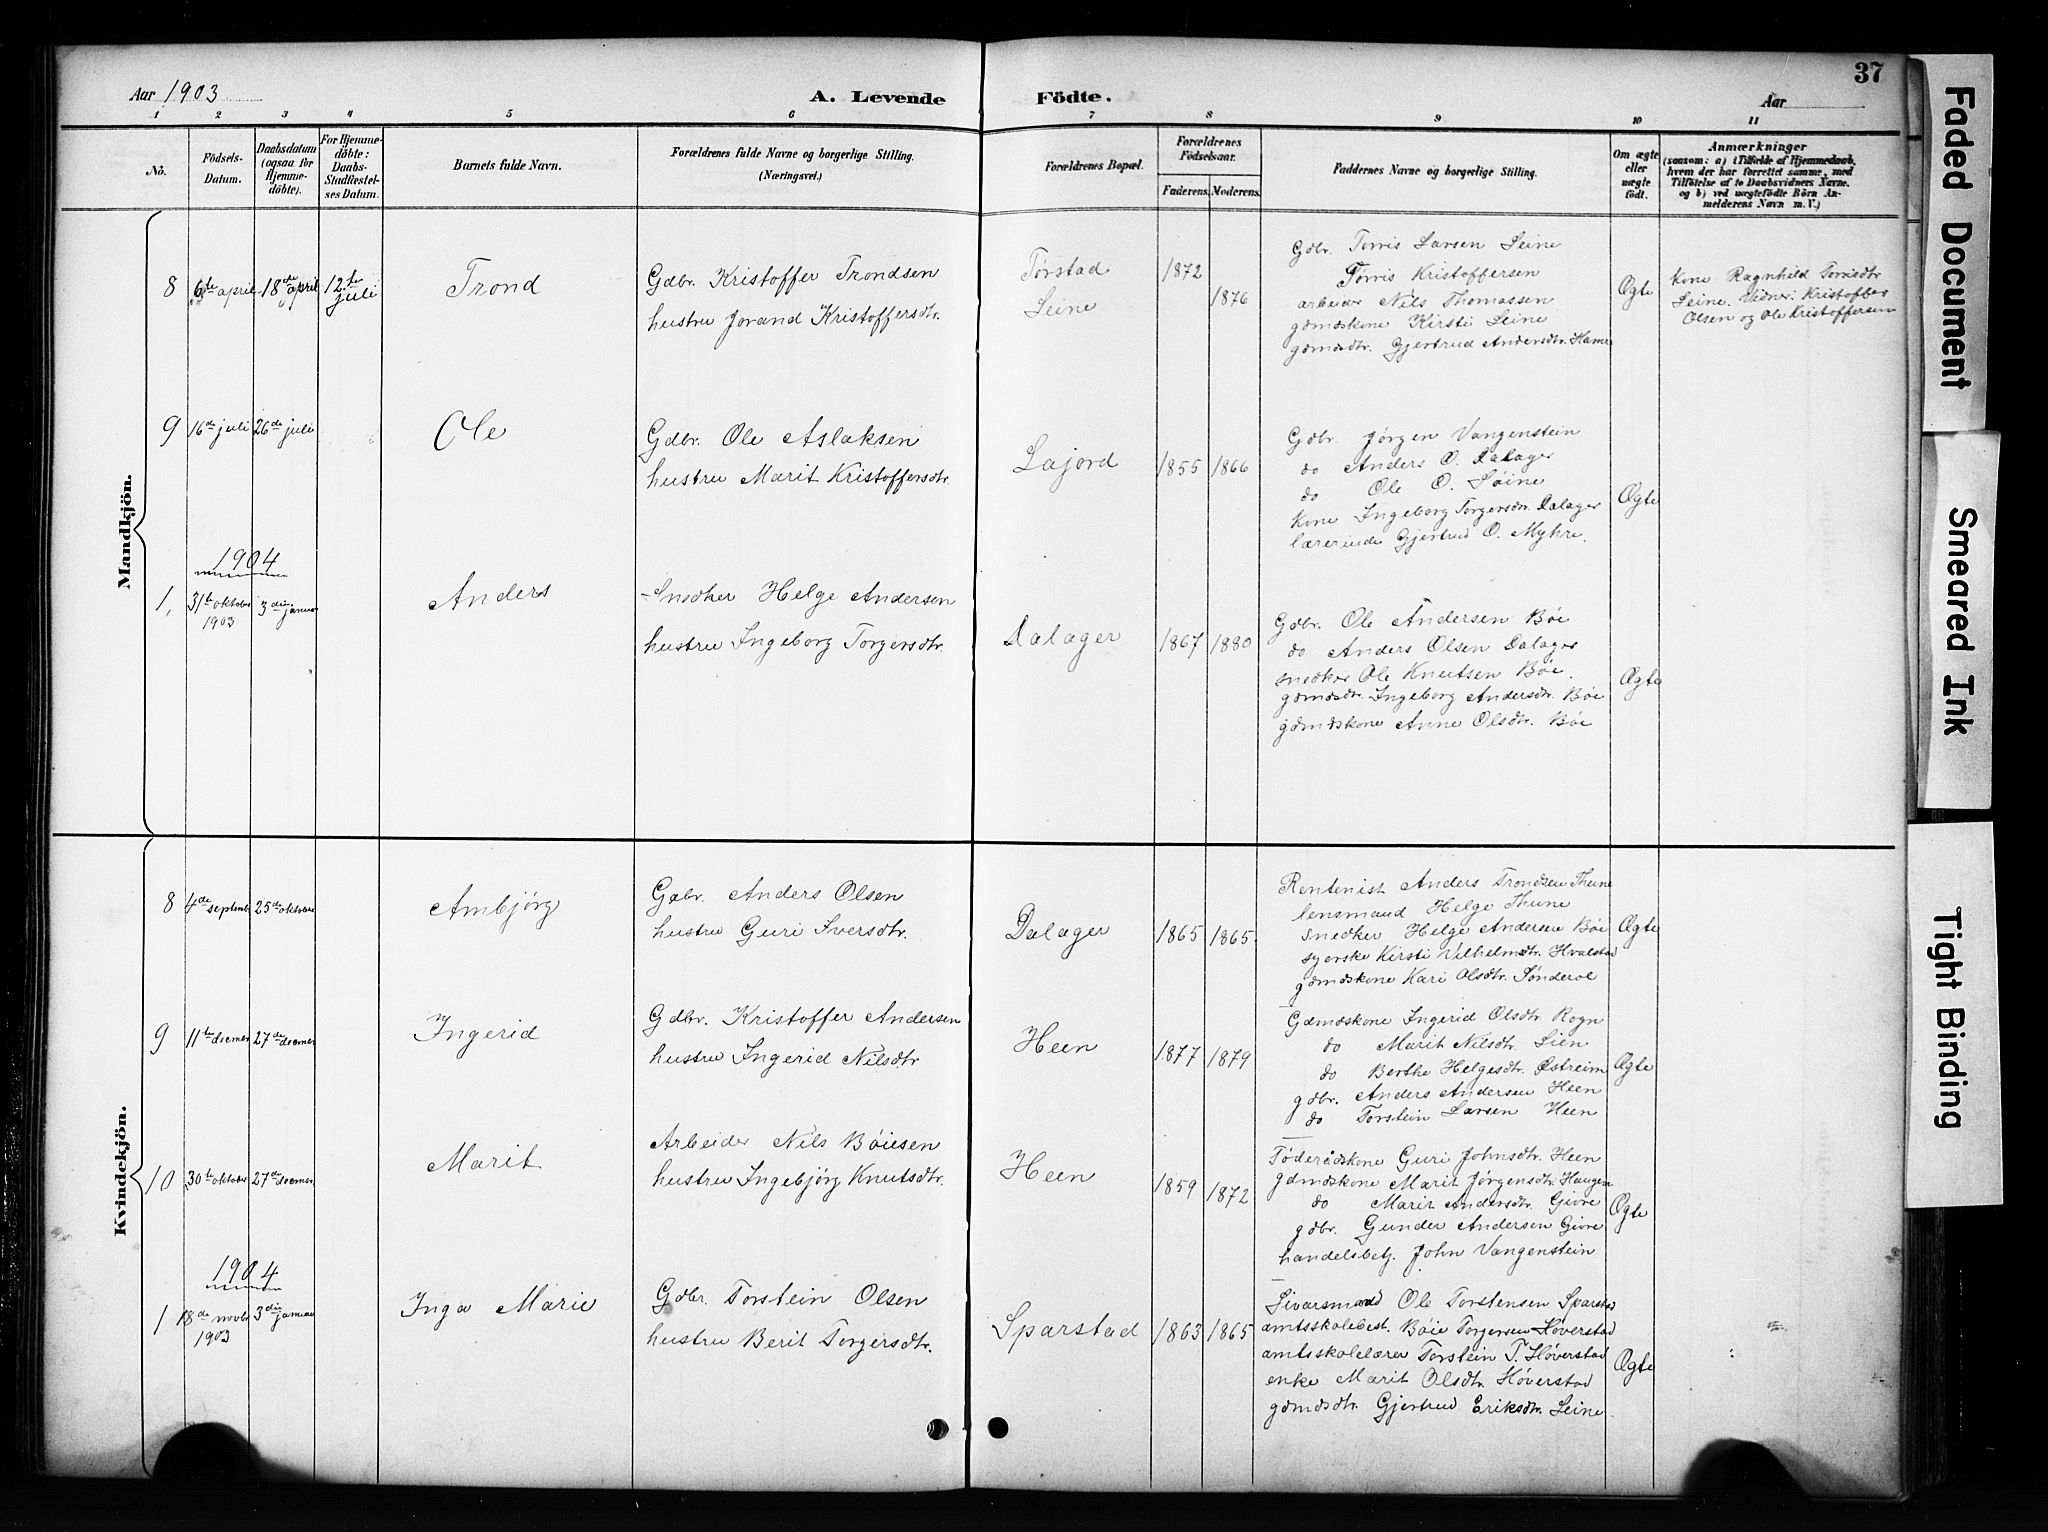 Aar 1903
A. Levende Födte.
Aar
37
1 2 3 4 5 6 7 8 9 10 11
No.
Födsels-Datum.
Daabsdatum (ogsaa for Hjemme-döbte).
For Hjemme-döbte: Daabs-Stadfæstel-ses Datum.
Barnets fulde Navn.
Forældrenes fulde Navne og borgerlige Stilling.
(Næringsvei.)
Forældrenes Bopæl.
Forældrenes Födselsaar.
Faderens. Moderens.
Faddernes Navne og borgerlige Stilling.
Om ægte eller uægte födt.
Anmærkninger
(saasom: a) i Tilfælde af Hjemmedaab,
hvem der har forrettet samme, med
Tilföielse af to Daabsvidners Navne.
og b) ved uægtefödte Börn An-
melderens Navn m. V.)
Mandkjön.
8 6te april 18de april 12te juli
Trond
Gdbr. Kristoffer Trondsen
hustru Jorand Kristoffersdtr.
Tørstad
Leine
1872 1876
Gdbr. Torris Larsen Leine
Torris Kristoffersen
arbeider Nils Thomassen
gdmdskone Kirsti Leine
gdmdsdtr. Gjertrud Andersdtr. Hamre
Ægte
Kone Ragnhild Torrisdtr
Leine. Vidner: Kristoffer
Olsen og Ole Kristoffersen
9 16de juli 26de juli
Ole
Gdbr. Ole Aslaksen
hustru Marit Kristoffersdtr.
Lajord
1855 1866
Gdbr. Jørgen Vangenstein
do Anders O. Dalager
do Ole O. Søine
Kone Ingeborg Torgersdtr. Dalager
lærerinde Gjertrud O. Myhre.
Ægte
1904
1, 31te oktober 1903 3die januar
Anders
Snedker Helge Andersen
hustru Ingeborg Torgersdtr.
Dalager
1867 1880
Gdbr. Ole Andersen Bøe
do Anders Olsen Dalager
snedker Ole Knutsen Bøe.
gdmdsdtr. Ingeborg Andersdtr. Bøe
gdmdskone Anne Olsdtr. Bøe
Ægte
Kvindekjön.
8 4de septemb. 25de oktober
Ambjørg
Gdbr. Anders Olsen
hustru Guri Iversdtr.
Dalager
1865 1865
Rentenist Anders Trondsen Thune
lensmand Helge Thune
snedker Helge Andersen Bøe
syerske Kirsti Vilhelmsdtr. Hvalstad
gdmdskone Kari Olsdtr. Sønderol
Ægte
9 11te decmer 27de decmer
Ingerid
Gdbr. Kristoffer Andersen
hustru Ingerid Nilsdtr.
Heen
1877 1879
Gdmdskone Ingerid Olsdtr. Rogn
do Marit Nilsdtr. Lien
do Berthe Helgesdtr. Østreim
gdbr. Anders Andersen Heen
do Torstein Larsen Heen
Ægte
10 30te oktober 27de decmer
Marit
Arbeider Nils Bøiesen
hustru Ingebjørg Knutsdtr.
Heen
1859 1872
Føderådskone Guri Johnsdtr. Heen
gdmdskone Marit Jørgensdtr. Haugen
do Marit Andersdtr. Givre
gdbr. Gunder Andersen Givre
handelsbetj. John Vangenstein
Ægte
1904
1 18de novbr 1903 3die januar
Inga Marie
Gdbr. Torstein Olsen
hustru Berit Torgersdtr.
Sparstad
1863 1865
Livarsmand Ole Torstensen Sparstad
amtsskolebest. Bøie Torgersen Høverstad
amtsskolelærer Torstein T. Høverstad
enke Marit Olsdtr. Høverstad
gdmdsdtr. Gjertrud Eriksdtr. Leine
Ægte
Faded Document
Smeared Ink
Tight Binding